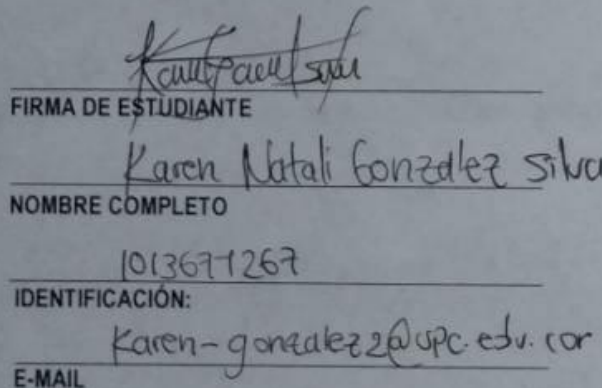 FIRMA DE ESTUDIANTE
Karen Natali Gonzalez Silva
NOMBRE COMPLETO
1013677267
IDENTIFICACIÓN:
Karen-gonzalez2@upc.edu.cor
E-MAIL